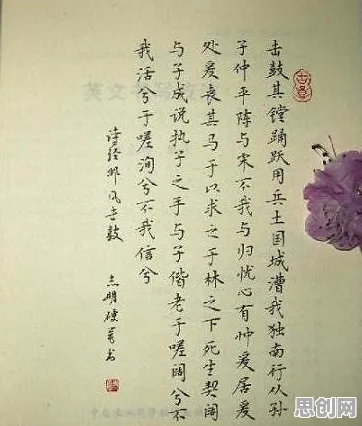 击鼓其镗踊跃用兵土国城漕我独南行从孙
子仲平阵与宋不我与归忧心有忡爱居爱
处爱丧其马于以求之于林之下死生契阔
与子成说执子之手与子偕老于嗟阔兮不
我活兮于嗟洵兮不我信兮
诗经邶风击鼓
志明硬笔书
思创网